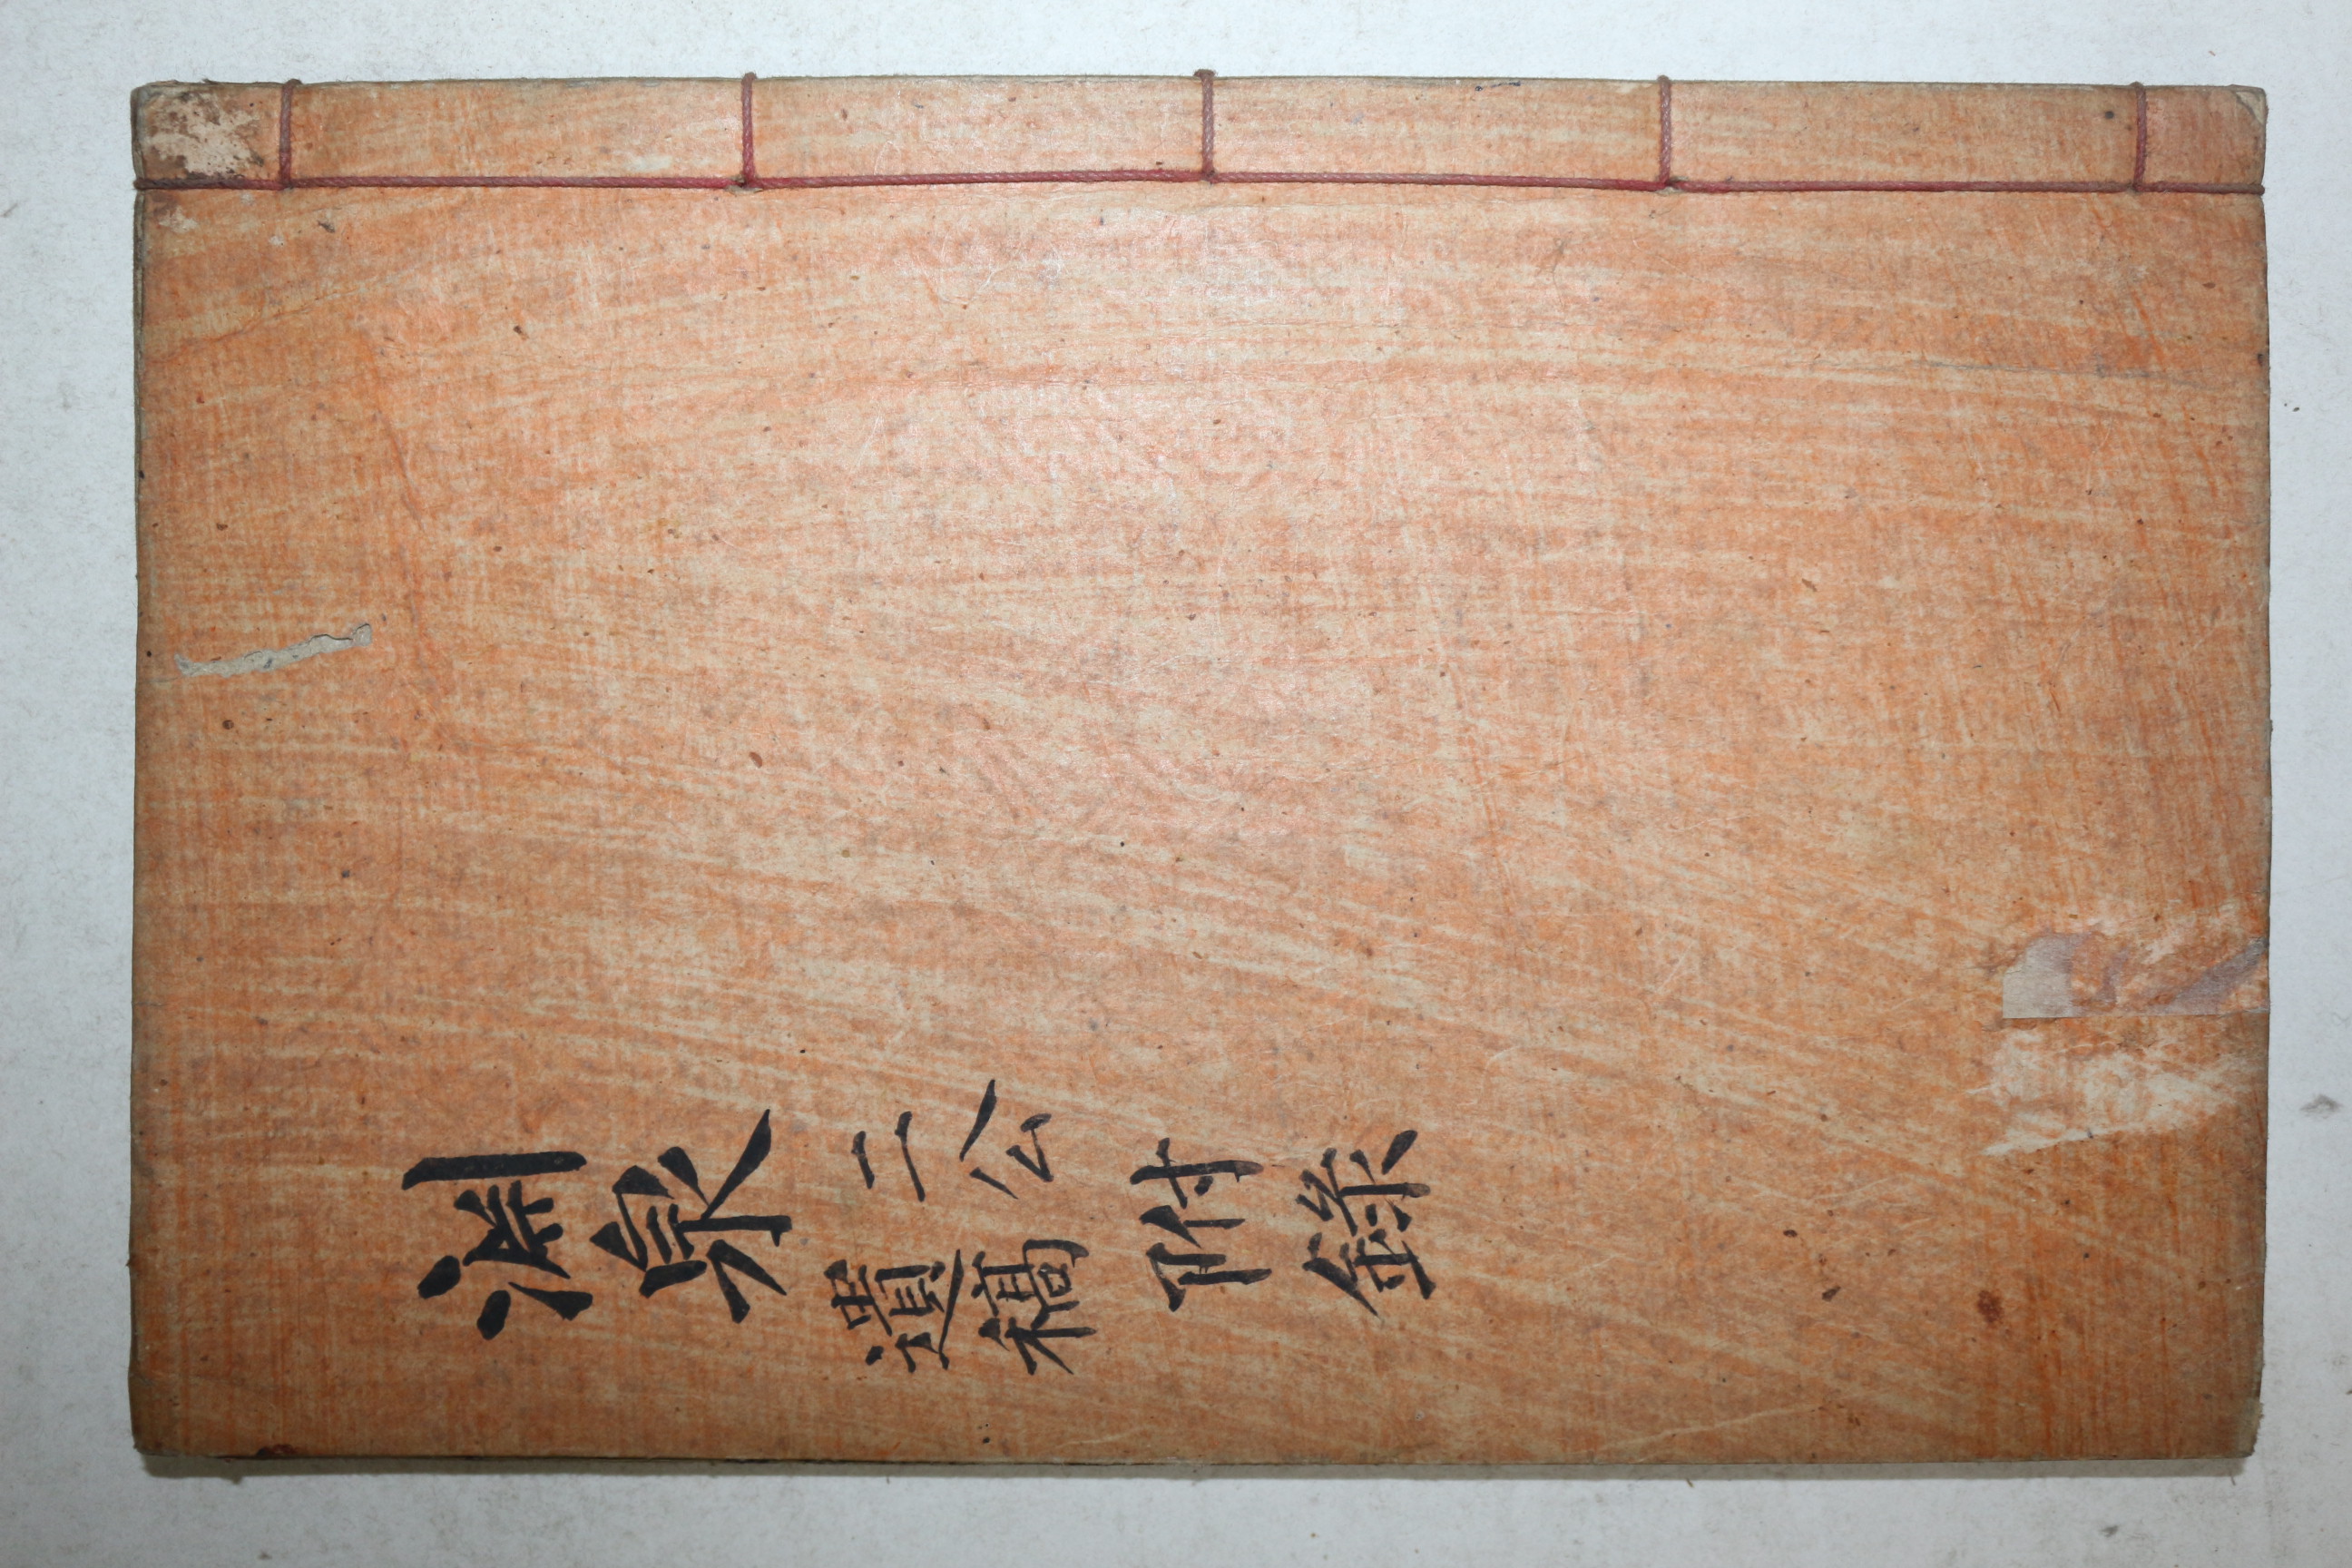 渊泉二公遺稿附錄